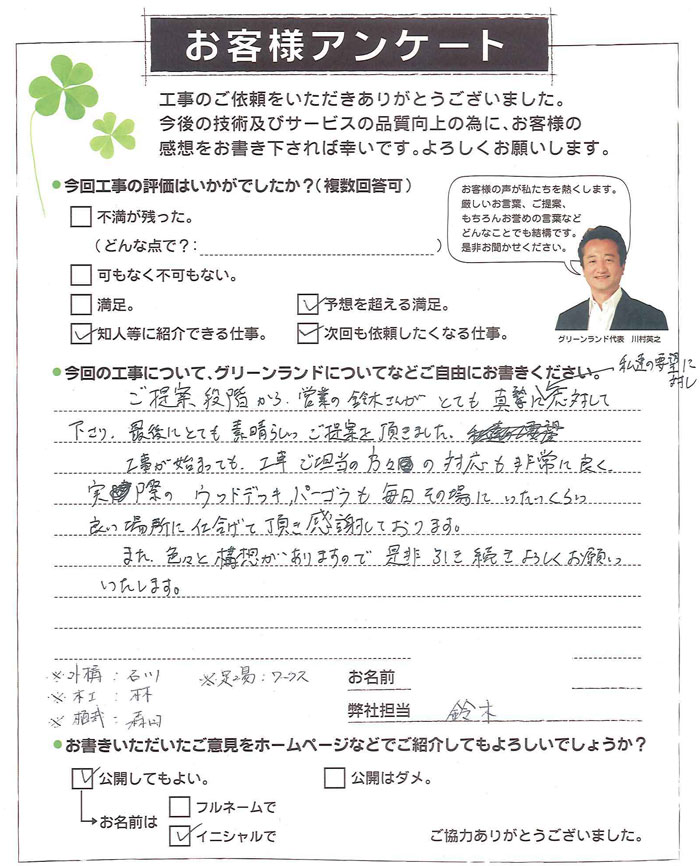 お客様アンケート
工事のご依頼をいただきありがとうございました。
今後の技術及びサービスの品質向上の為に、お客様の
感想をお書き下されば幸いです。よろしくお願いします。
●今回工事の評価はいかがでしたか？（複数回答可）
不満が残った。
（どんな点で？：　　　）
可もなく不可もない。
満足。
予想を超える満足。
知人等に紹介できる仕事。
次回も依頼したくなる仕事。
お客様の声が私たちを熱くします。
厳しいお言葉、ご提案、
もちろんお誉めの言葉など
どんなことでも結構です。
是非お聞かせください。
グリーンランド代表　川村英之
●今回の工事について、グリーンランドについてなどご自由にお書きください。
私達の要望に
対し
ご提案段階から、営業の鈴木さんが とても 真摯に応対して
下さり、最後にとても 素晴らしい ご提案を頂きました。
工事が始まっても、工事ご担当の方々の 対応も非常に良く、
実際の ウッドデッキ、パーゴラも 毎日その場に いたいくらい
良い場所に仕上げて頂き感謝しております。
また、色々と構想がありますので 是非 引き続きよろしくお願い
いたします。
※外構：石川
※足場：ワークス
※木工：林
※植栽：森田
お名前
弊社担当　鈴木
●お書きいただいたご意見をホームページなどでご紹介してもよろしいでしょうか？
公開してもよい。
公開はダメ。
→お名前は
フルネームで
イニシャルで
ご協力ありがとうございました。